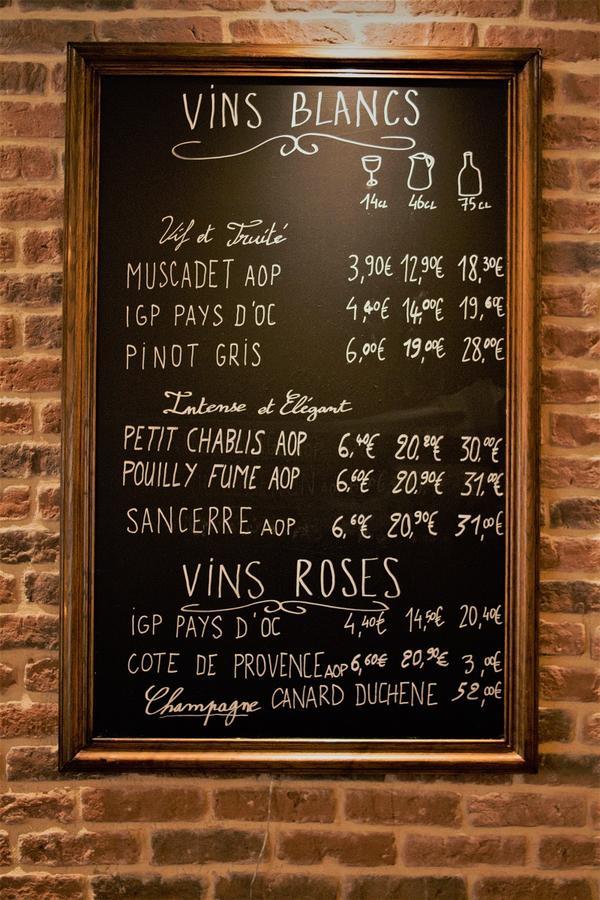 ViNS BLANCS
14cL 46cL 75cL
Vif et Fruité
MUSCADET AOP 3,90€ 12,90€ 18,30€
IGP PAYS D'OC 4,40€ 14,00€ 19,60€
PiNOT GRiS 6,00€ 19,00€ 28,00€
Intense et Elégant
PETIT CHABLIS AOP 6,40€ 20,20€ 30,00€
POUILLY FUME AOP 6,60€ 20,90€ 31,00€
SANCERRE AOP 6,60€ 20,90€ 31,00€
ViNS ROSES
iGP PAYS D'OC 4,40€ 14,50€ 20,40€
COTE DE PROVENCE AOP 6,60€ 20,90€
Champagne CANARD DUCHENE 52,00€